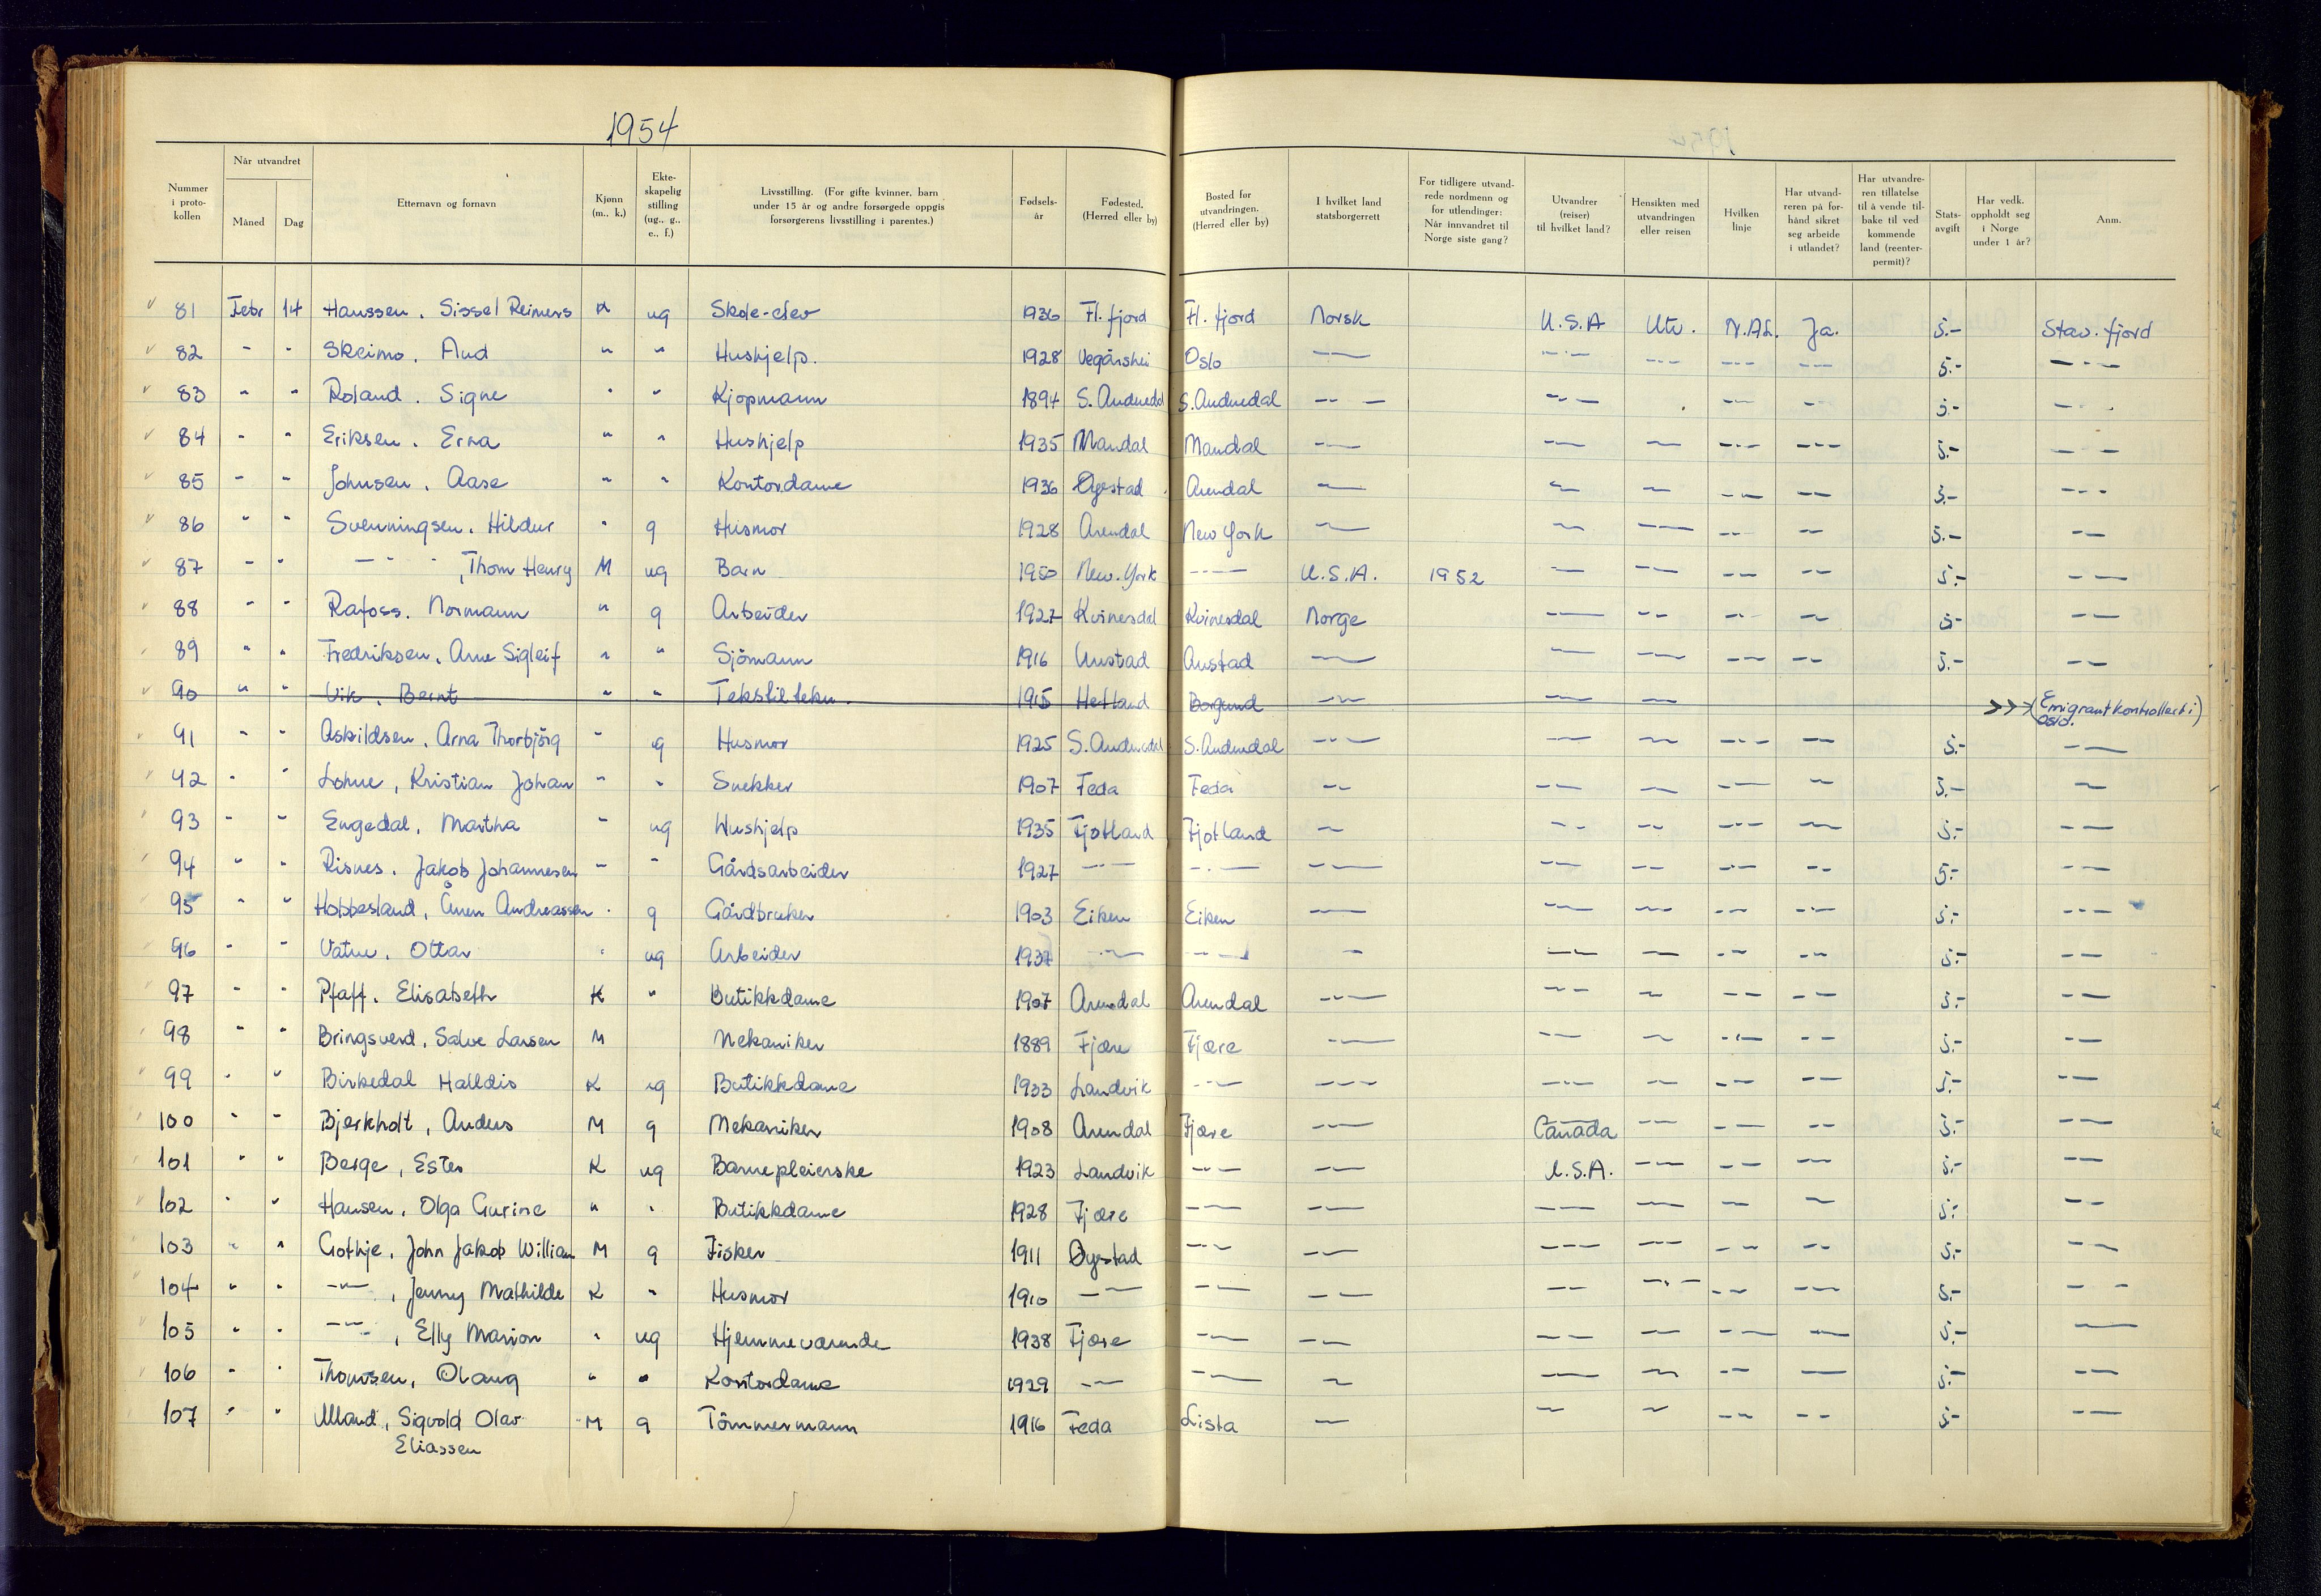 1954
Nummer i protokollen | Når utvandret Måned | Dag | Etternavn og fornavn | Kjønn (m., k.) | Ekteskapelig stilling (ug., g., e., f.) | Livsstilling. (For gifte kvinner, barn under 15 år og andre forsørgede oppgis forsørgerens livsstilling i parentes.) | Fødselsår | Fødested. (Herred eller by) | Bosted før utvandringen. (Herred eller by) | I hvilket land statsborgerrett | For tidligere utvandrede nordmenn og for utlendinger: Når innvandret til Norge siste gang? | Utvandrer (reiser) til hvilket land? | Hensikten med utvandringen eller reisen | Hvilken linje | Har utvandreren på forhånd sikret seg arbeide i utlandet? | Har utvandreren tillatelse til å vende tilbake til vedkommende land (reenterpermit)? | Statsavgift | Har vedk. oppholdt seg i Norge under 1 år? | Anm.
81 Febr 14 Hanssen, Sissel Reimers K ug Skole-elev 1936 Fl. fjord Fl. fjord Norsk U.S.A Utv. N.A.L. Ja. 5.- Stav. fjord
82 " " Skeimo, Aud " " Hushjelp. 1928 Vegårshei Oslo — — — — — 5.- —
83 " " Roland, Signe " " Kjøpmann 1894 S. Audnedal S. Audnedal — — — — 5.- —
84 " " Eriksen, Erna " " Hushjelp 1935 Mandal Mandal — — — — — 5.- —
85 " " Johnsen, Aase " " Kontordame 1936 Øyestad Arendal — — — — — 5.- —
86 " " Svenningsen, Hildur " g Husmor 1928 Arendal New York — — — — — 5.- —
87 " " — " — , Thom Henry M ug Barn 1950 New-York — U.S.A. 1952 — — — — 5.- —
88 " " Rafoss, Normann " g Arbeider 1927 Kvinesdal Kvinesdal Norge — — — — 5- —
89 " " Fredriksen, Arne Sigleif " " Sjömann 1916 Austad Austad — — — — — 5.- —
90 " " Vik, Bernt " " Tekstiltekn. 1915 Hetland Borgund — — — >>> (Emigrantkontrollert i Oslo.)
91 " " Askildsen, Arna Thorbjörg " g Husmor 1925 S. Audnedal S. Audnedal — — — — — 5.- —
92 " " Lohne, Kristian Johan " " Snekker 1907 Feda Feda — — — — — 5.- —
93 " " Engedal, Martha " ug Hushjelp 1935 Fjotland Fjotland — — — — — 5.- —
94 " " Risnes, Jakob Johannesen " " Gårdsarbeider 1927 — — — — — — — 5.- —
95 " " Hobbesland, Ånen Andreassen " g Gårdbruker 1903 Eiken Eiken — — — — — 5.- —
96 " " Vatne, Ottar " ug Arbeider 1937 — — — — — — — 5.- —
97 " " Pfaff, Elisabeth K " Butikkdame 1907 Arendal Arendal — — — — — 5.- —
98 " " Bringsverd, Salve Larsen M Mekaniker 1889 Fjære Fjære — — — — — 5.- —
99 " " Birkedal Halldis K ug Butikkdame 1933 Landvik — — — — — — 5.- —
100 " " Bjerkholt, Anders M g Mekaniker 1908 Arendal Fjære — Canada — — — 5.- —
101 " " Berge, Ester K ug Barnepleierske 1923 Landvik — — U.S.A. — — — 5.- —
102 " " Hansen, Olga Gurine " " Butikkdame 1928 Fjære — — — — — — 5.- —
103 " " Gothje, John Jakob William M g Fisker 1911 Øyestad — — — — — — 5.- —
104 " " — " — , Jenny Mathilde K " Husmor 1910 — — — — — — — 5.- —
105 " " — " — , Elly Marion " ug Hjemmeværende 1938 Fjære — — — — — — 5.- —
106 " " Thomsen, Olaug " " Kontordame 1929 — — — — — — — 5.- —
107 " " Ulland, Sigvold Olav M g Tömmermann 1916 Feda Lista — — — — — 5- —
Eliassen